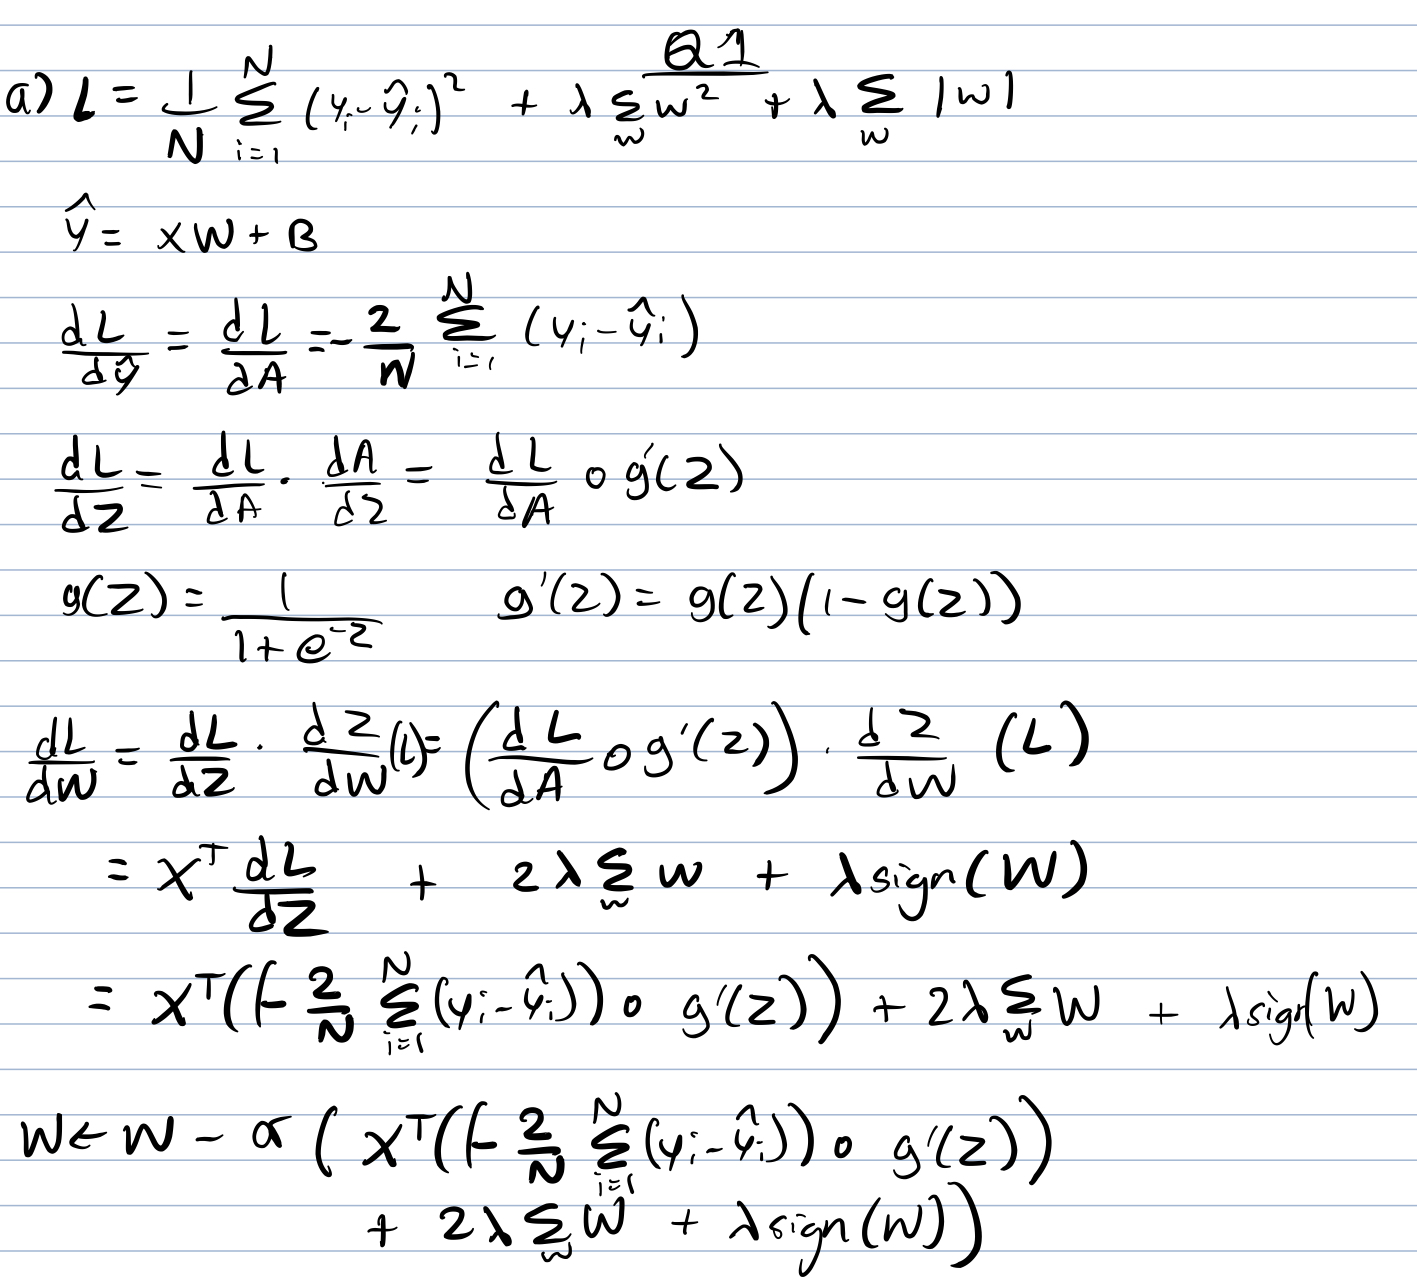 Q1
a) L = 1/N Σ_{i=1}^{N} (y_i - ŷ_i)² + λ Σ_w w² + λ Σ_w |w|
ŷ = XW + B
dL/dŷ = dL/dA = - 2/N Σ_{i=1}^{N} (y_i - ŷ_i)
dL/dZ = dL/dA · dA/dZ = dL/dA ∘ g'(Z)
g(Z) = 1/(1 + e^{-Z}) g'(Z) = g(Z)(1 - g(Z))
dL/dW = dL/dZ · dZ/dW (L) = (dL/dA ∘ g'(Z)) · dZ/dW (L)
= X^T dL/dZ + 2λ Σ_w w + λ sign(W)
= X^T((- 2/N Σ_{i=1}^{N} (y_i - ŷ_i)) ∘ g'(Z)) + 2λ Σ_w W + λ sign(W)
W ← W - α ( X^T((- 2/N Σ_{i=1}^{N} (y_i - ŷ_i)) ∘ g'(Z))
+ 2λ Σ_w W + λ sign(W))